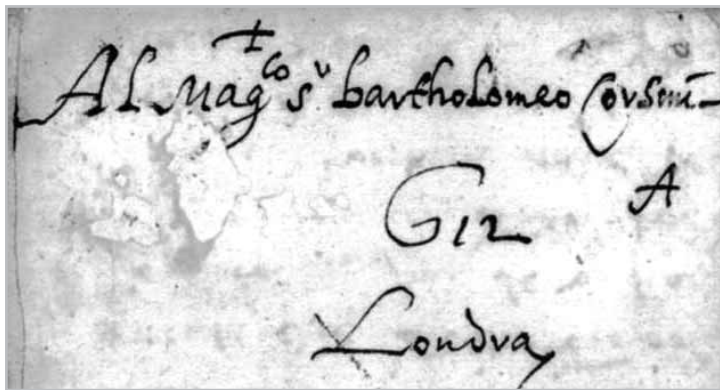 Al Mag^co s^r bartholomeo Corsini
A
G12
Londra